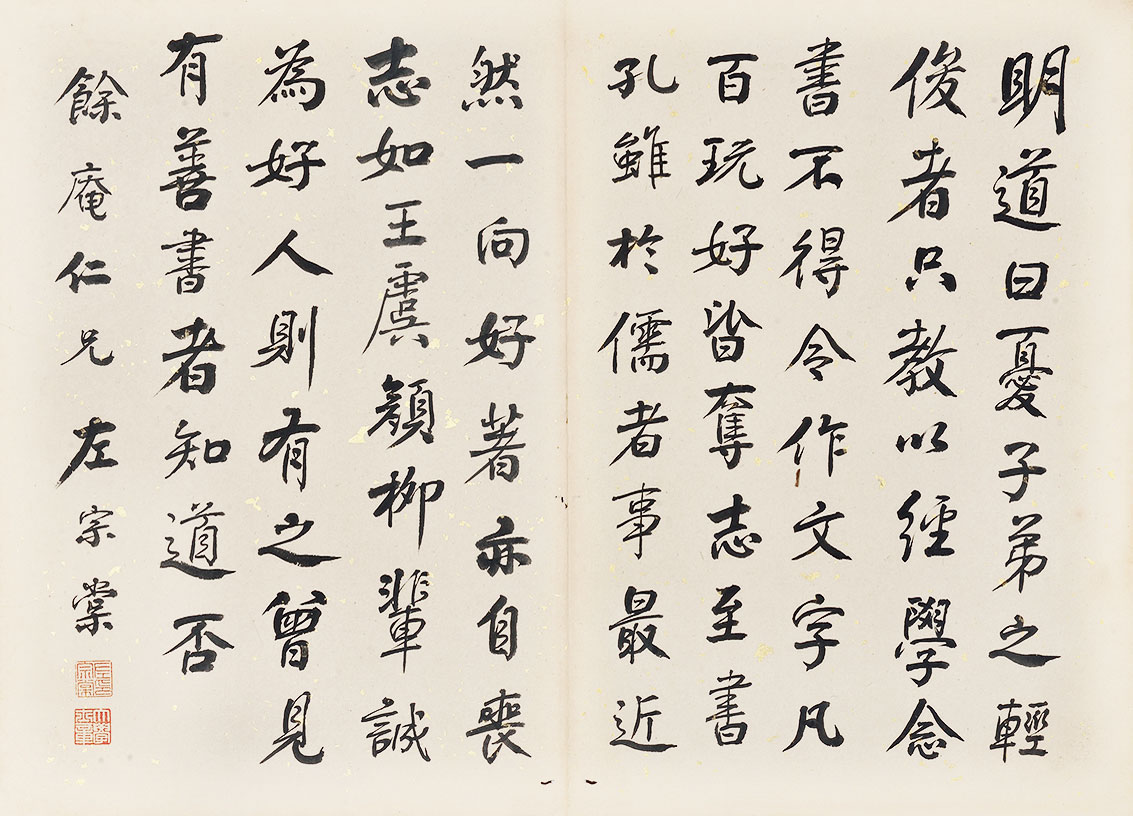 明道曰憂子弟之輕
俊者只教以經學念
書不得令作文字凡
百玩好皆奪志至書
札雖於儒者事最近
然一向好著亦自喪
志如王虞顏柳輩誠
為好人則有之曾見
有善書者知道否
餘庵仁兄 左宗棠